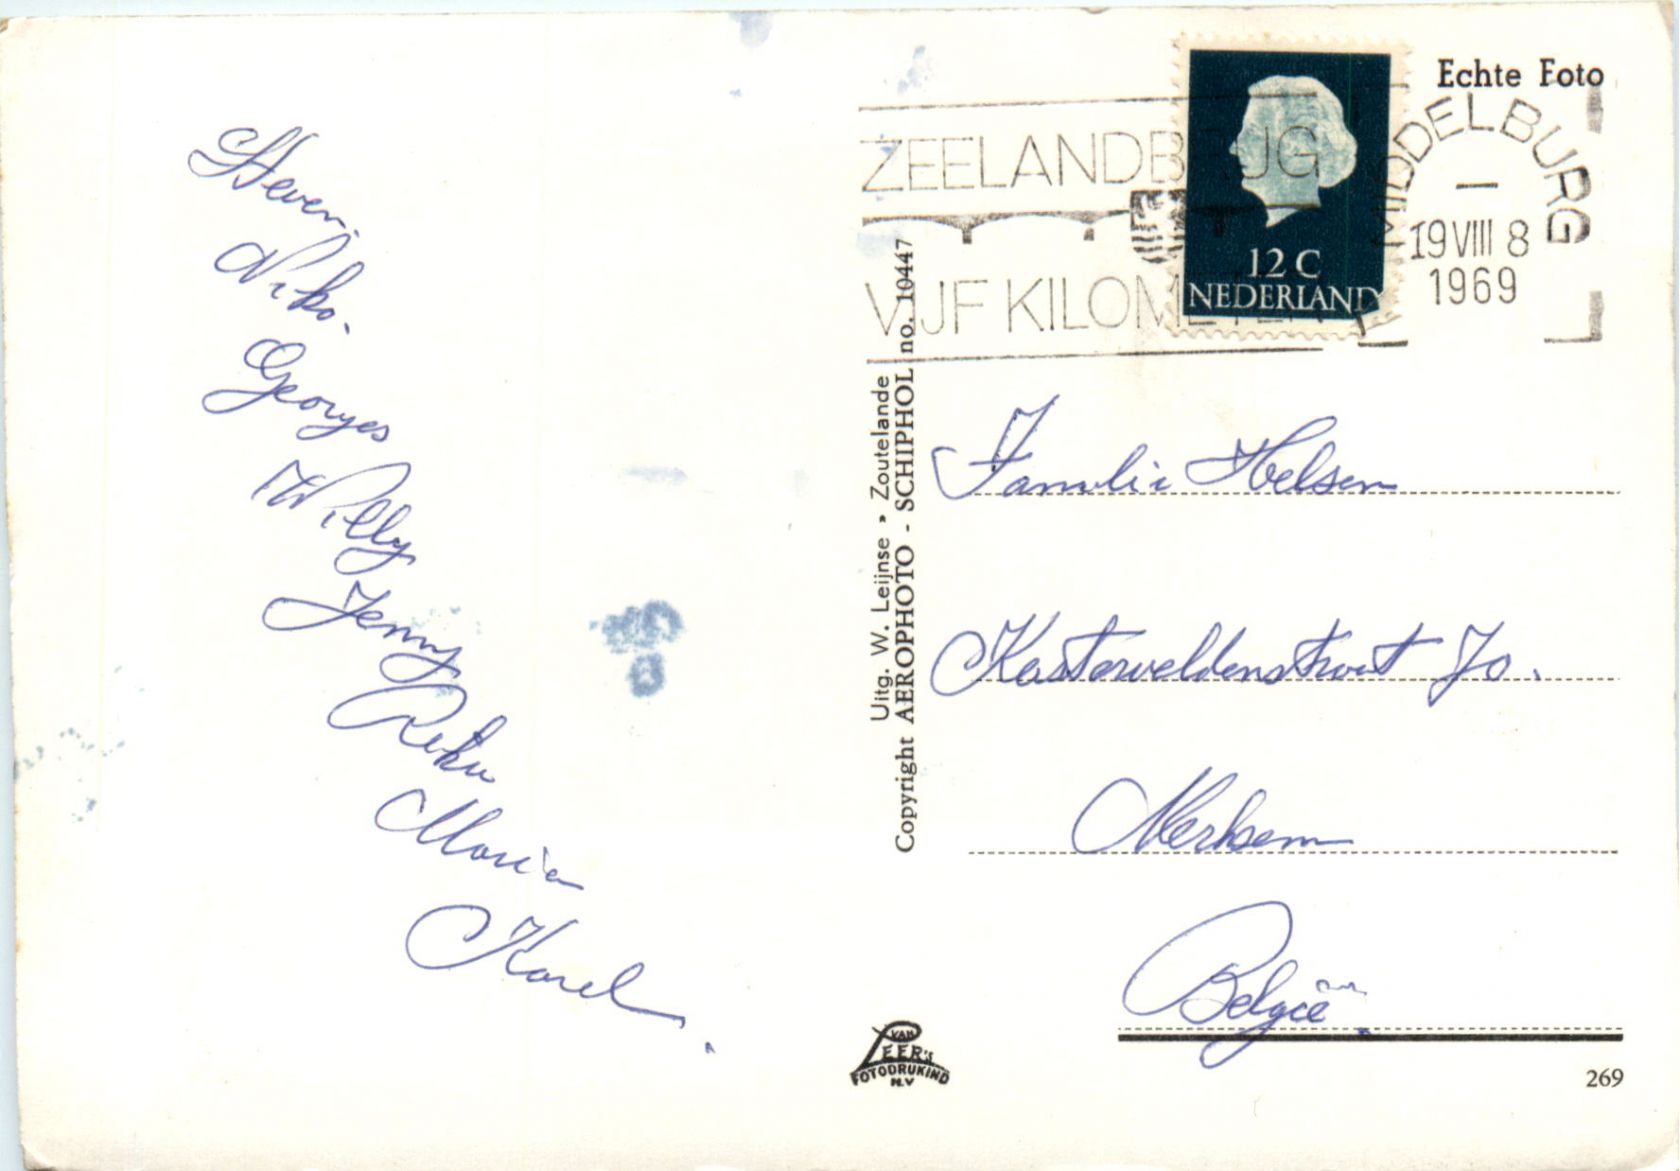 Steven.
Niko.
Georges
Willy
Jenny
Maria
Karel.
Echte Foto
ZEELANDBRUG
VIJF KILOMETER
12 C
NEDERLAND
MIDDELBURG
19 VIII 8
1969
Uitg. W. Leijnse • Zoutelande
Copyright AEROPHOTO - SCHIPHOL no. 10447
Familie Helsen
70.
Merksem
België.
VAN
LEER'S
FOTODRUKIND
N.V
269